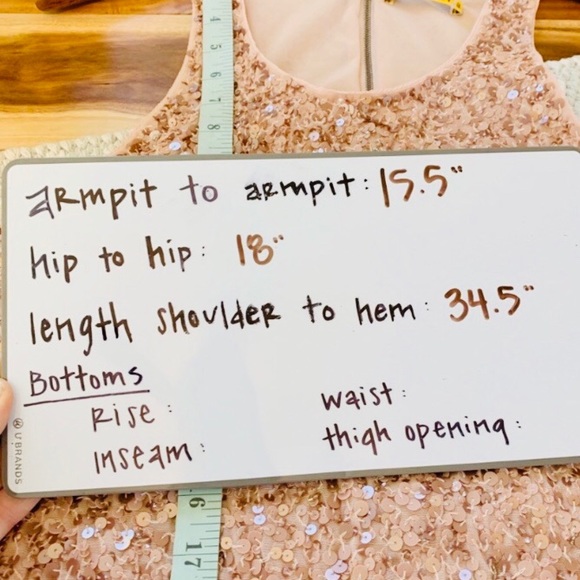 4
5
6
7
8
armpit to armpit: 15.5"
hip to hip: 18"
length shoulder to hem: 34.5"
Bottoms
Rise:
waist:
Inseam:
thigh opening:
U BRANDS
6
17